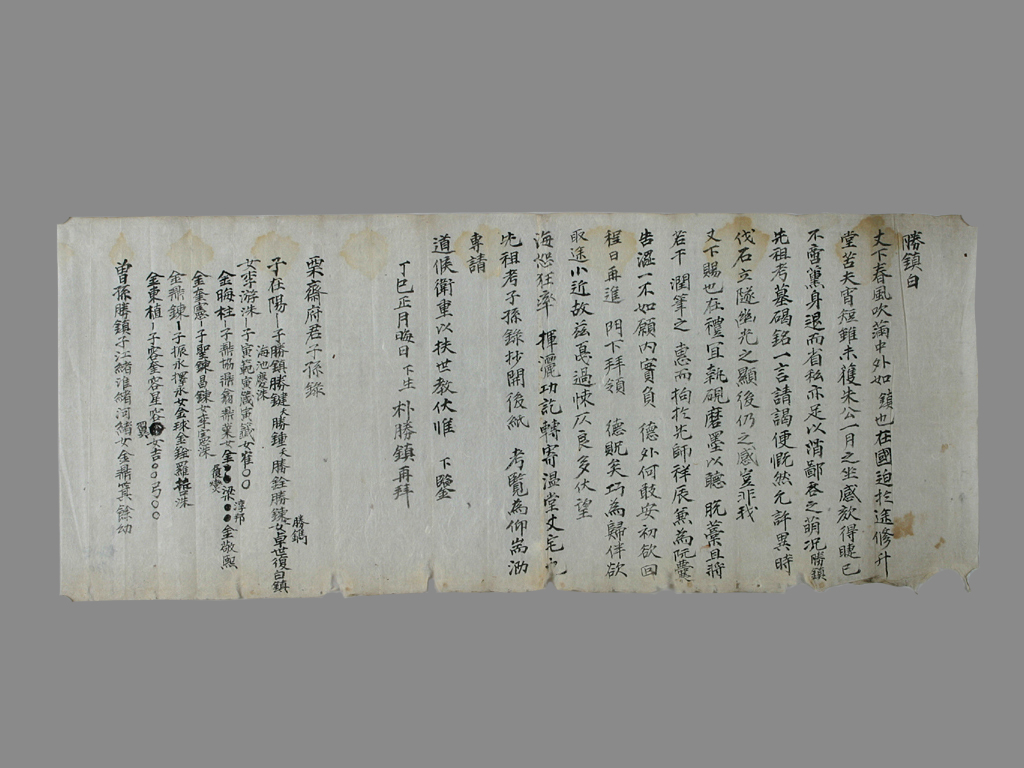 勝鎮白
丈下春風吹滿中外如鎮也在國迫於途修升
堂苦夫宵短雖未獲朱公一月之坐感放得睫已
不啻薰身退而省私亦足以消鄙吝之萌况勝鎮
先祖考墓碣銘一言請謁便慨然允許異時
伐石立隧幽光之顯後仍之感豈非我
丈下賜也在禮宜執硯磨墨以聽 旣藁且將
若干 潤筆之 憲而拘於先師祥辰兼為阮囊
告澁一不如願內實負 德外何敢安初欲回
程日再進 門下拜領 德貺矣巧為歸伴欲
取途小近故玆㦖過悚仄良多伏望
海恕狂率 揮灑功訖轉寄溫堂丈宅
先祖考子孫錄抄開後紙 考覽為仰耑洒
專請
道候衛重以扶世敎伏惟 下鑒
丁巳正月晦日 下生 朴勝鎮再拜
栗齋府君子孫錄
子在陽–子勝鎮勝鍵夭勝鍾夭勝銓勝鍊女卓世復白鎮
勝鎬
女李游洙–子寅範寅箴寅籤女崔○○
海池慶洙
淳邦
金晦柱–子鼎協鼎翕鼎業女金●●梁●●金敬熙
金奎憲–子聖鍊昌鍊女李憲深
金鼎鍊–子振永擇永女金球金鎰羅哲洙
金東楨–子容奎容星容 女吉○○弓○○
翼
曽孫勝鎮子江緖浪緖河緖女金鼎箕餘幼